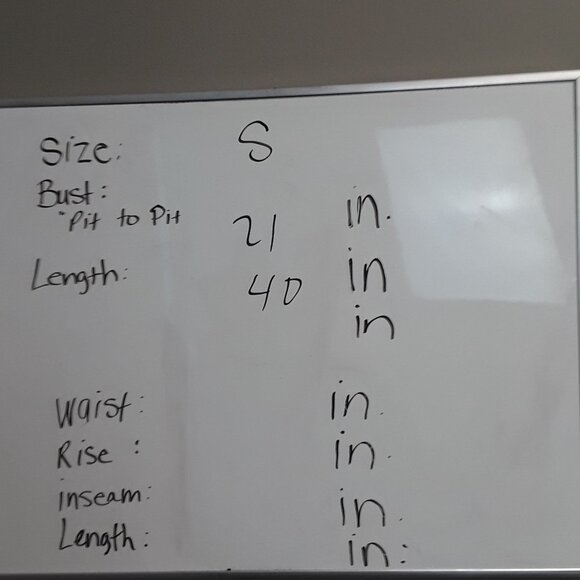 Size: S
Bust:
"Pit to Pit 21 in.
Length: 40 in
in
Waist: in.
Rise : in.
inseam: in.
Length: in: